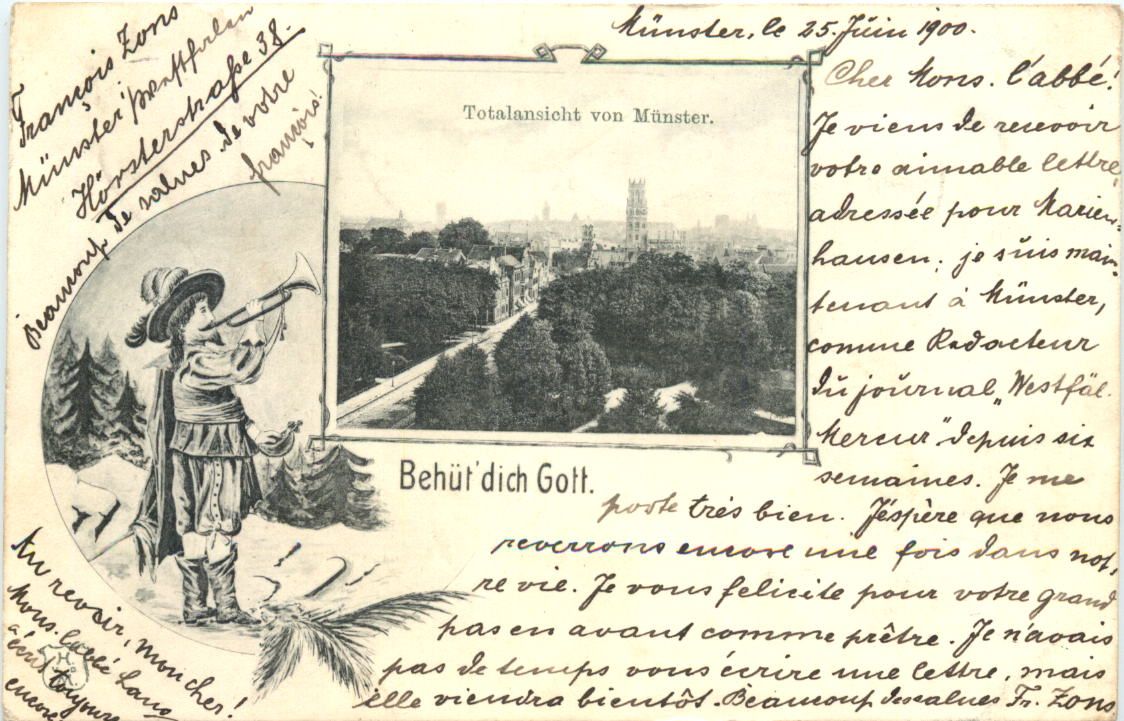 Münster, le 25. Juin 1900.
Cher Mons. l'abbé!
Je viens de recevoir
votre aimable lettre,
adressée pour Marien-
hausen; je suis main-
tenant à Münster,
comme Redacteur
du journal „Westfäl.
Mercur" depuis six
semaines. Je me
porte très bien. J'éspère que nous
reverrons encore une fois dans not,
re vie. Je vous felicite pour votre grand
pas en avant comme prêtre. Je n'avais
pas de temps vous écrire une lettre, mais
elle viendra bientôt. Beaucoup de salues Fr. Zons
François Zons
Münster i/Westfalen
Hörsterstraße 38.
Beaucoup de salues de votre
françois!
Totalansicht von Münster.
Behüt' dich Gott.
Au revoir, mon cher!
Mons. l'abbé
toujours
encore